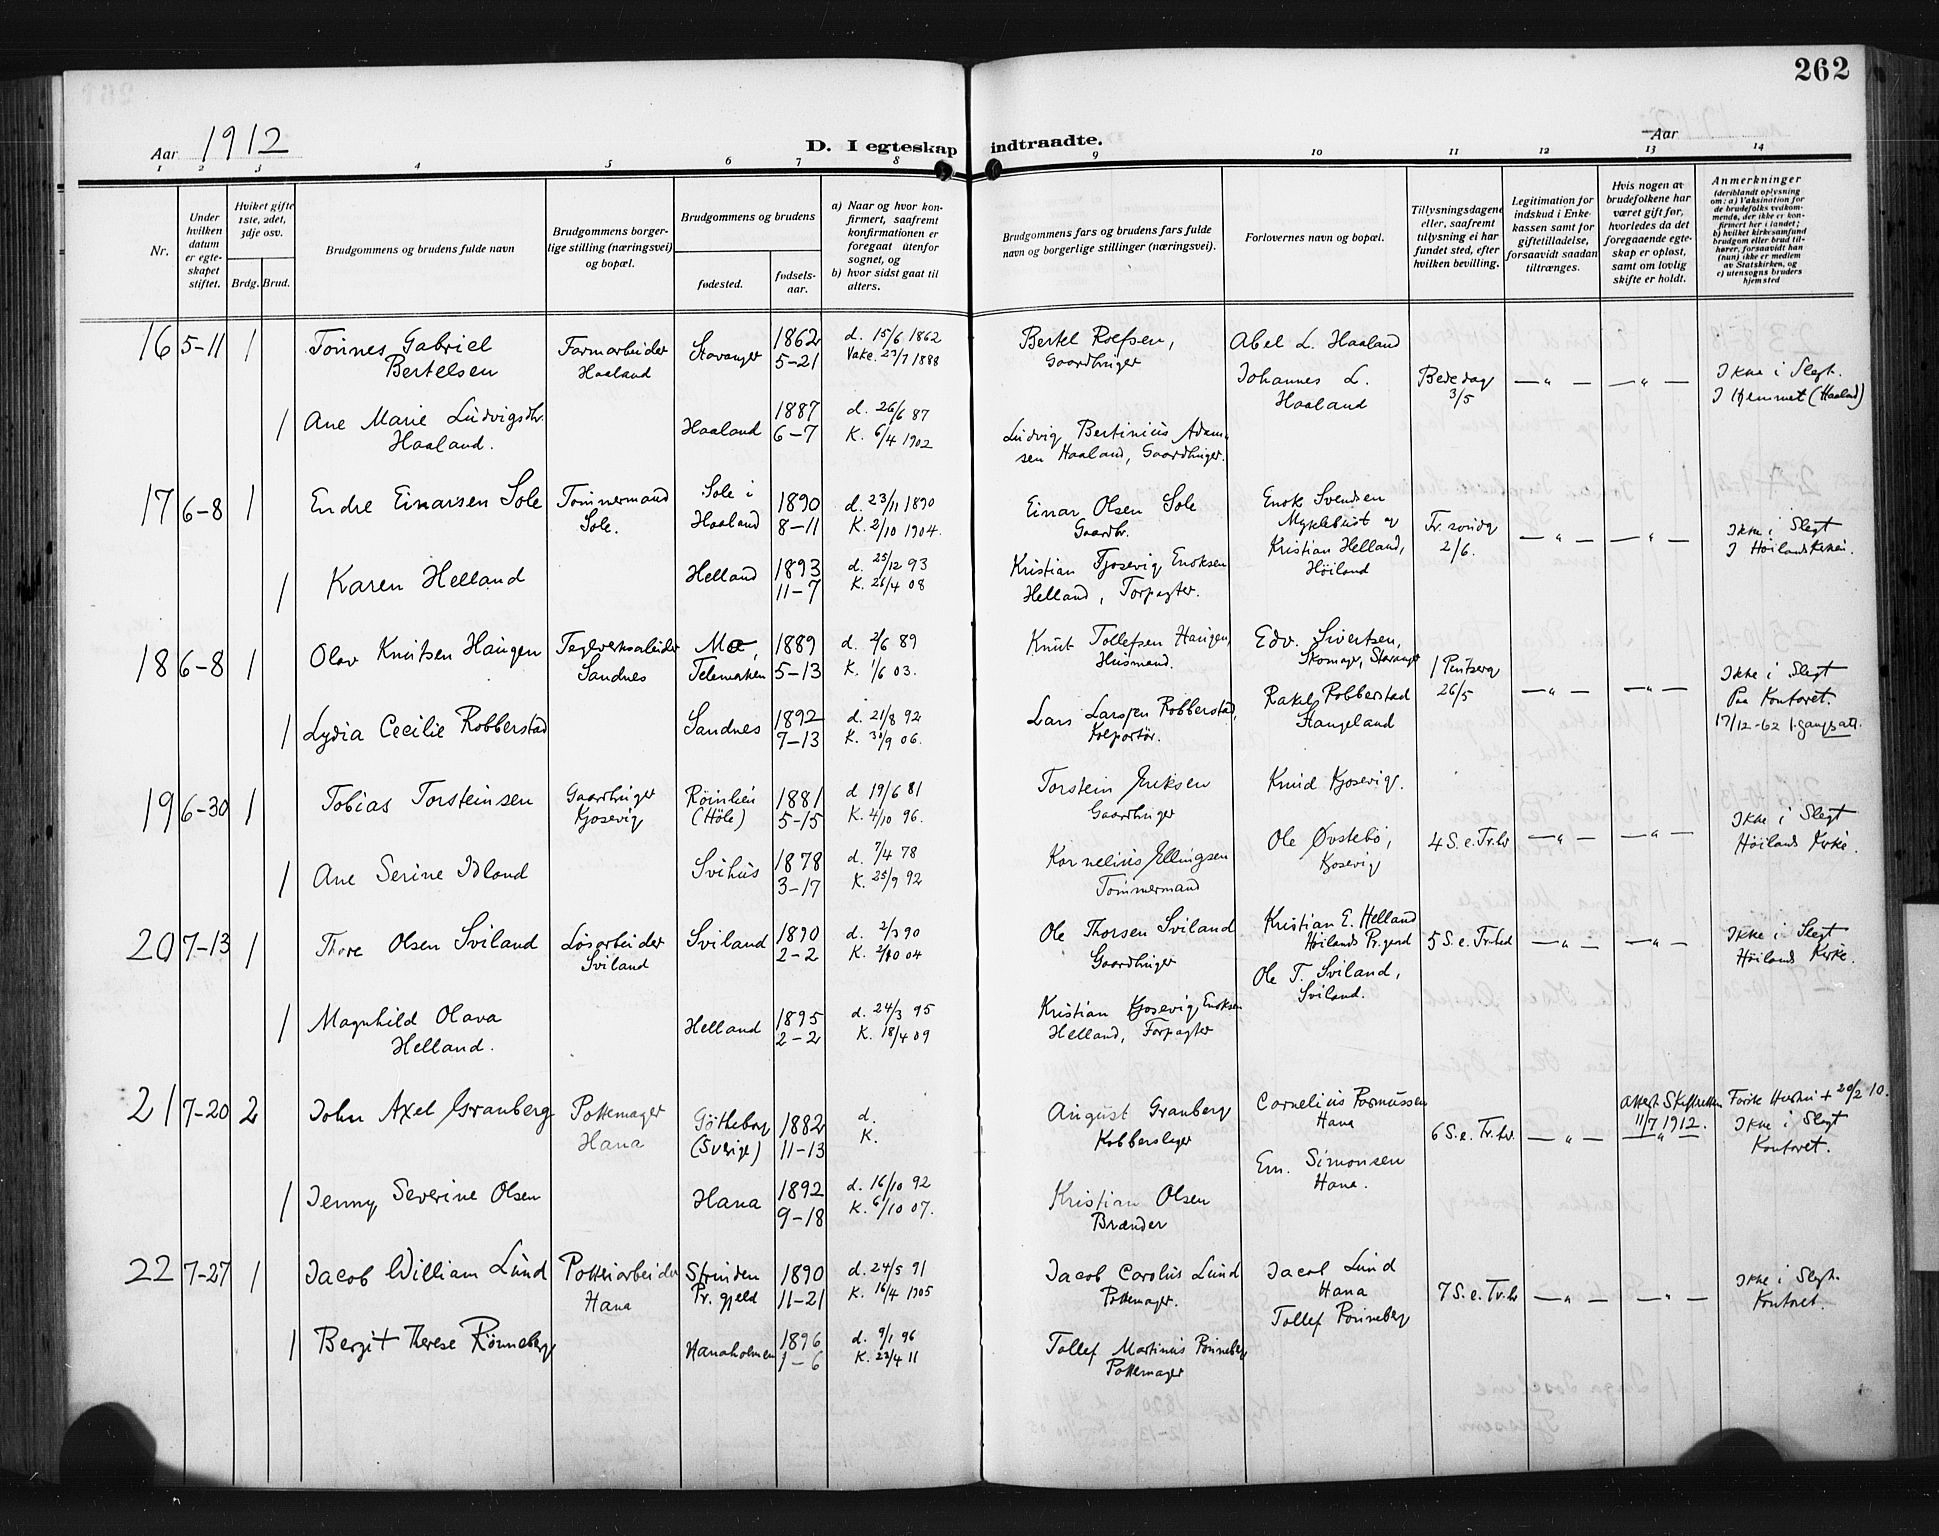 262
Aar 1912
D. I egteskap indtraadte.
Aar
1 2 3 4 5 6 7 8 9 10 11 12 13 14
Nr.
Under hvilken datum er egteskapet stiftet.
Hviket gifte 1ste, 2det, 3dje osv.
Brdg. Brud.
Brudgommens og brudens fulde navn
Brudgommens borgerlige stilling (næringsvei) og bopæl.
Brudgommens og brudens
fødested.
fødselsaar.
a) Naar og hvor konfirmert, saafremt konfirmationen er foregaat utenfor sognet, og
b) hvor sidst gaat til alters.
Brudgommens fars og brudens fars fulde navn og borgerlige stillinger (næringsvei).
Forlovernes navn og bopæl.
Tillysningsdagene eller, saafremt tillysning ei har fundet sted, efter hvilken bevilling.
Legitimation for indskud i Enkekassen samt for giftetilladelse, forsaavidt saadan tiltrænges.
Hvis nogen av brudefolkene har været gift før, hvorledes da det foregaaende egteskap er opløst, samt om lovlig skifte er holdt.
Anmerkninger
(deriblandt oplysning om: a) Vaksination for de brudefolks vedkommende, der ikke er konfirmert her i landet; b) hvilket kirkesamfund brudgom eller brud tilhører, forsaavidt han (hun) ikke er medlem av Statskirken, og c) utensogns bruders hjemsted
16 5-11 1 Tönnes Gabriel Bertelsen
Farmarbeider Haaland
Stavanger
1862 5-21
d. 15/6 1862
Vakc. 23/7 1888
Bertel Roefsen, Gaardbruger
Abel L. Haaland
Johannes L. Haaland
Bededag 3/5
— „ — — „ —
Ikke i Slegt.
I Hjemmet (Haaland)
1 Ane Marie Ludvigsdtr. Haaland.
Haaland
1887 6-7
d. 26/6 87
K. 6/4 1902
Ludvig Bertinius Adamsen Haaland, Gaardbruger.
17 6-8 1 Endre Einarsen Sole
Tømmermand Sole.
Sole i Haaland
1890 8-11
d. 23/11 1890
K. 2/10 1904.
Einar Olsen Sole Gaardbr.
Enok Svendsen Myklebust og
Kristian Helland, Höiland
Tr. søndg 2/6.
— „ — — „ —
Ikke i Slegt
I Höilands Kirke.
1 Karen Helland
Helland
1893 11-7
d. 25/12 93
K. 26/4 08
Kristian Kjosevig Enoksen Helland, Forpagter.
18 6-8 1 Olav Knutsen Haugen
Teglverksarbeider Sandnes
Mo, Telemarken
1889 5-13
d. 2/6 89
K. 1/6 03.
Knut Tollefsen Haugen, Husmand.
Edv. Sivertsen, Skomager, Stavanger
Rakel Robberstad Stangeland
1 Pintsedg 26/5
— „ — — „ —
Ikke i Slegt
Paa Kontoret.
17/12-62 1.gangsatt.
1 Lydia Cecilie Robberstad
Sandnes
1892 7-13
d. 21/8 92
K. 30/9 06.
Lars Larsen Robberstad, Kolportør.
19 6-30 1 Tobias Torsteinsen
Gaardbruger Kjosevig
(Höle)
1881 5-15
d 19/6 81
K. 4/10 96.
Torstein Eriksen Gaardbruger
Knud Kjosevig.
Ole Øvstebö, Kjosevig
4 S. e. Tr.hr
— „ — — „ —
Ikke i Slegt
Höilands Kirke.
1 Ane Serine Idland
Svihus
1878 3-17
d. 7/4 78
K. 25/9 92
Kornelius Ellingsen Tömmermand
20 7-13 1 Thore Olsen Sviland
Lösarbeider Sviland
Sviland
1890 2-2
d. 2/3 90
K. 2/10 04
Ole Thorsen Sviland Gaardbruger
Kristian E. Helland Höilands Pr.gerd
Ole T. Sviland, Sviland.
5 S. e. Tr.hed
— „ — — „ —
Ikke i Slegt
Höilands Kirke.
1 Magnhild Olava Helland.
Helland
1895 2-2
d. 24/3 95
K. 18/4 09
Kristian Kjosevig Enoksen Helland, Forpagter
21 7-20 2 John Axel Granberg
Pottemager Hana
Götheborg (Sverige)
1882 11-13
d.
K.
August Granberg Kobberslager
Cornelius Rasmussen Hana
Em. Simonsen Hana.
6 S. e. Tr.hr.
— „ —
Attest Skifteretten 11/7 1912.
— „ —
Forste Hustru + 20/2 10.
Ikke i Slegt
Kontoret.
1 Jenny Severine Olsen
Hana
1892 9-18
d. 16/10 92
K. 6/10 07.
Kristian Olsen Brænder
22 7-27 1 Jacob William Lund
Potteriarbeider Hana
Strinden Pr. gjeld
1890 11-21
d. 24/5 91
K. 16/4 1905
Jacob Carolus Lund Pottemager.
Jacob Lund Hana
Tollef Rönneberg
7 S. e. Tr.hr
— „ — — „ —
Ikke i Slegt.
Kontoret.
1 Bergit Therese Rönneberg
Hanaholmen
1896 1-6
d. 9/1 96
K. 23/4 11
Tollef Martinius Rönneberg Pottemager